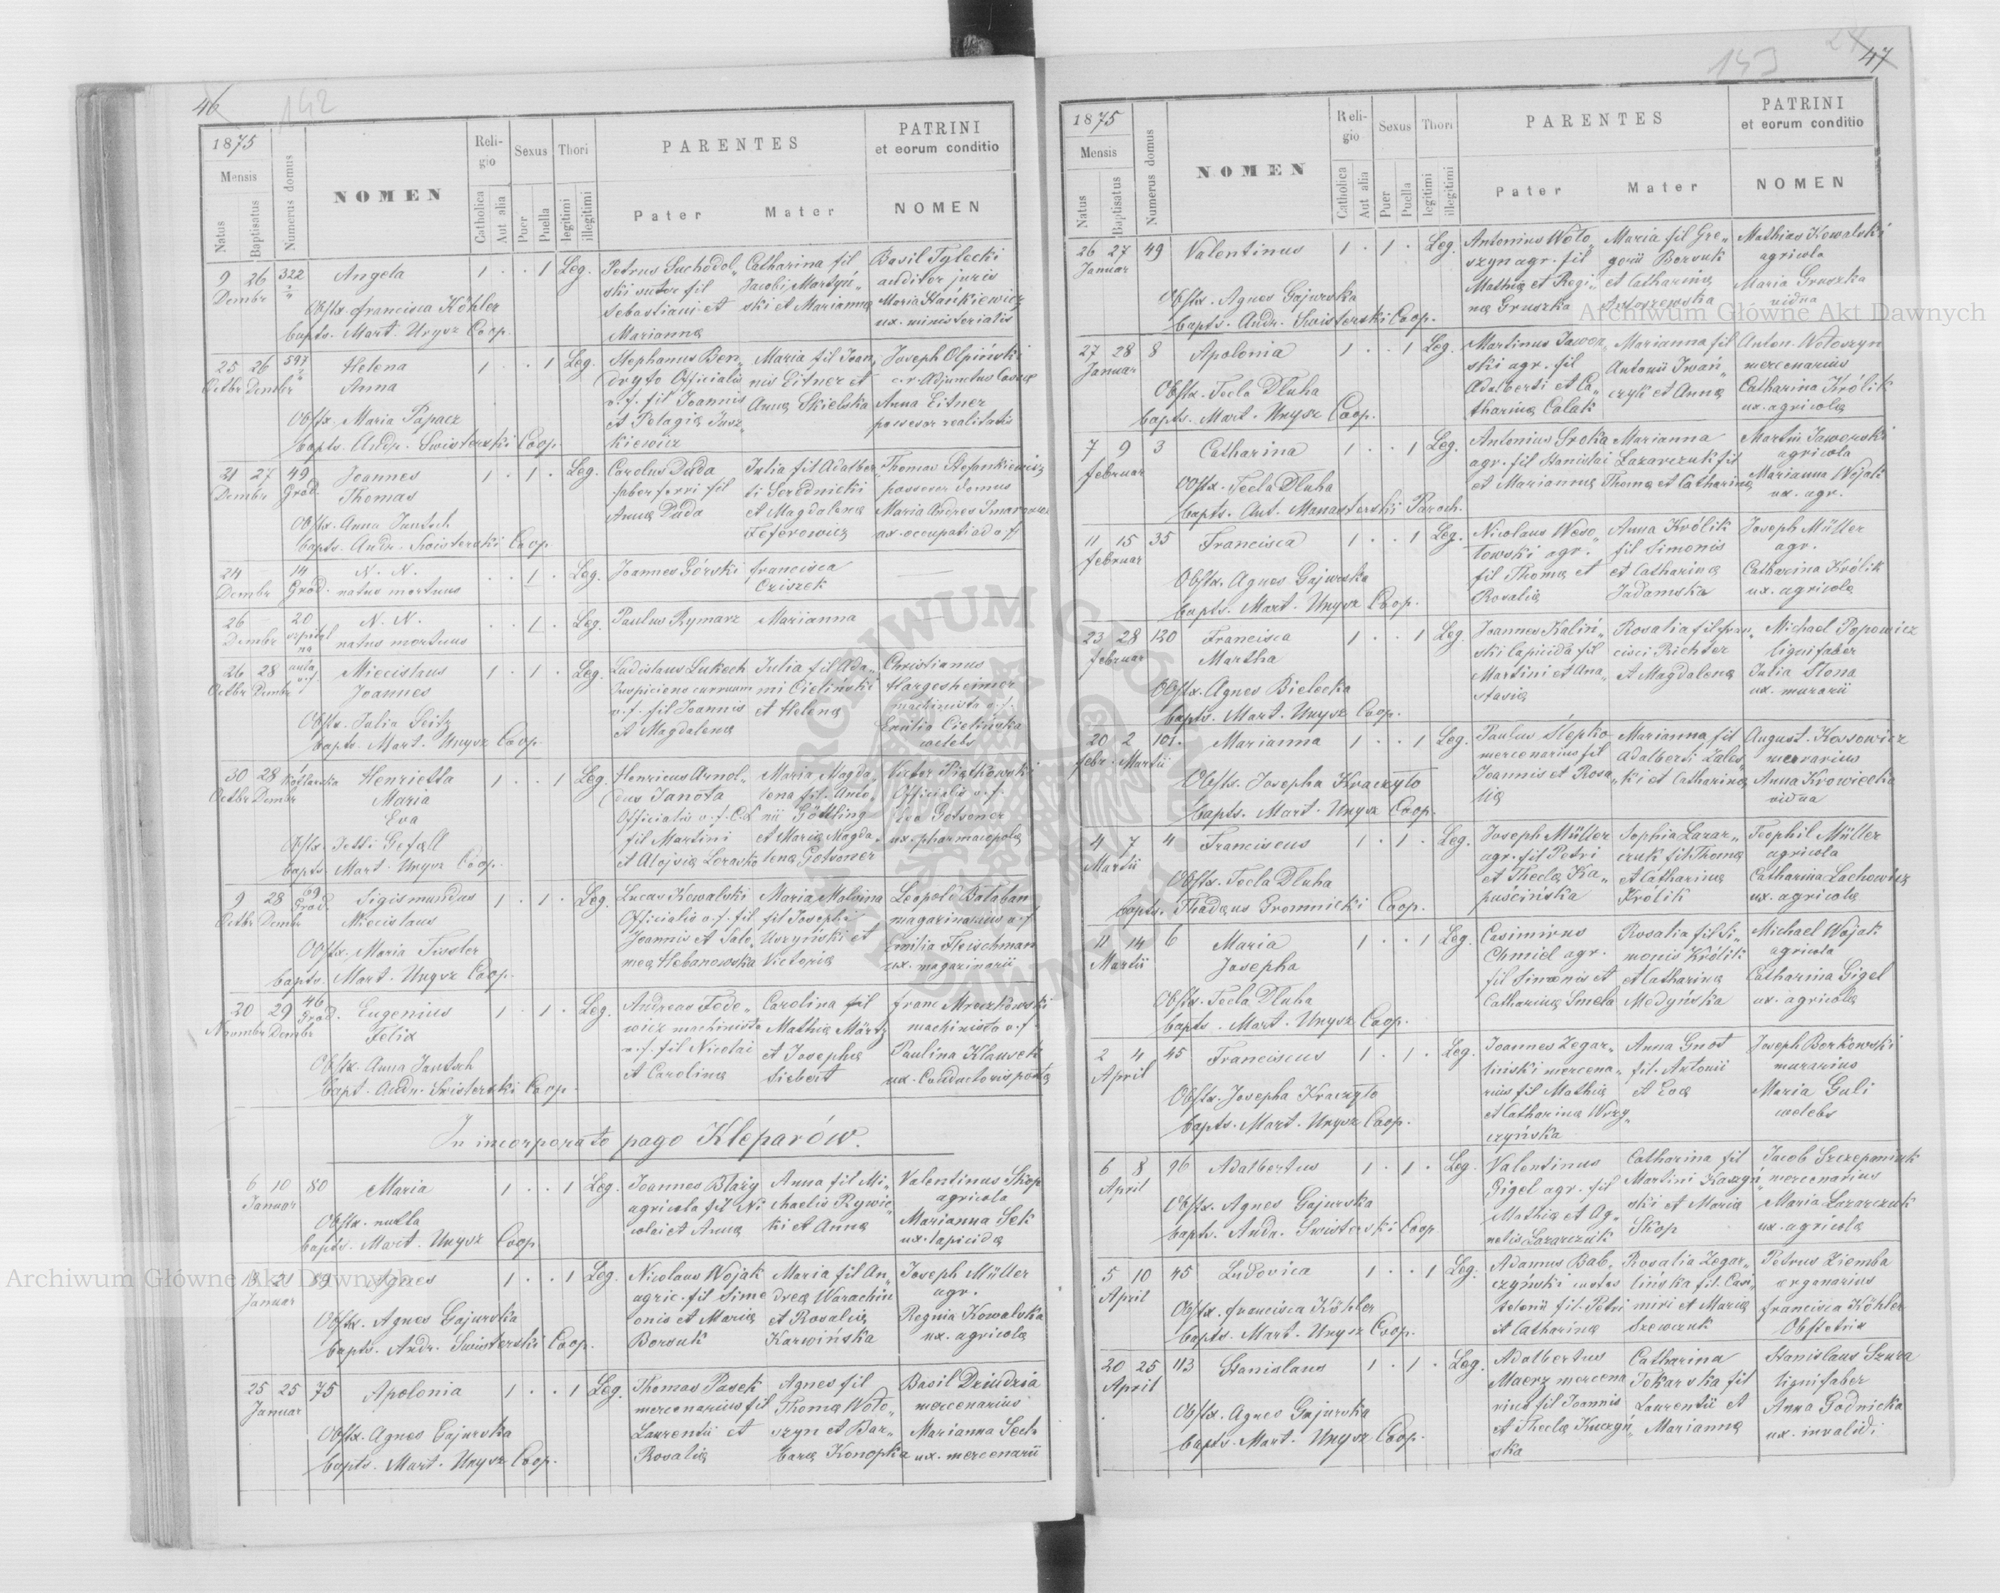 46
142
1875
Mensis
Natus
Baptisatus
Numerus domus
NOMEN
Religio
Catholica
Aut alia
Sexus
Puer
Puella
Thori
legitimi
illegitimi
PARENTES
Pater
Mater
PATRINI
et eorum conditio
NOMEN
9 26 322 Angela 1 . . 1 Leg. Petrus Suchodol- Catharina fil Basil Tylecki
Dembr ski sutor fil Jacobi Martyń- auditor juris
Obstx francisca Köhler Sebastiani et ski et Marianna Maria Stankiewicz
bapts. Mart. Unysz Coop. Marianna ux. ministerialis
25 26 597 Helena 1 . . 1 Leg. Stephanus Ben- Maria fil Joan- Joseph Olpiński
Octbr Dembr Anna dryto Officialis nis Eitner et c.r. Adjunctus Cassae
v. f. fil Joannis Anna Skielska Anna Eitner
Obstx. Maria Papacz et Pelagia Jusz- possessor realitatis
bapts. Andr. Swisterski Coop. kiewicz
21 27 49 Joannes 1 . 1 . Leg. Carolus Duda Julia fil Adalber- Thomas Stefankiewicz
Dembr Gród. Thomas faber ferri fil ti Serednicki possessor domus
Obstx. Anna Jantsch Anna Duda et Magdalena Maria Andres
bapts. Andr. Swisterski Coop. Feforowicz ux. occupati ad v. f.
24 14 N. N. . . 1 . Leg. Joannes Górski francisca
Dembr Gród. natus mortuus Cziszek
26 20 N. N. . . 1 . Leg. Paulus Rymarz Marianna
Dembr szpital na natus mortuus
26 28 Miecislaus 1 . 1 . Leg. Ladislaus Lukech Julia fil Ada- Christianus
Octbr Dembr Joannes Inspiciens curruum mi Cieliński Hargesheimer
v. f. fil Joannis et Helena machinista v. f.
Obstx. Julia Seitz et Magdalena Emilia Cielińska
bapts. Mart. Unysz Coop. coelebs
30 28 Henrietta 1 . . 1 Leg. Henricus Arnol- Maria Magda- Victor Piątkowski
Octbr Dembr Maria dus Janota lena fil. Anto- Officialis v. f.
Eva Officialis v. f. C.L. nii Gödling Eva Gotsoner
Obstx Jetti Gefall fil Martini et Maria Magda- ux. pharmacopola
bapts. Mart. Unysz Coop. et Aloysia Loraska lena Gotsoner
9 28 69 Gród. Sigismundus 1 . 1 . Leg. Lucas Kowalski Maria Malvina Leopold Balaban
Octbr Dembr Miecislaus Officialis v. f. fil. fil Josephi magazinarius v. f.
Obstx. Maria Tissler Joannis et Salo- Uszyński et Emilia Fleischman
bapts. Mart. Unysz Coop. mea Hebanowska Victoria ux. magazinarii
20 29 46 Gród. Eugenius 1 . 1 . Leg. Andreas Fede- Carolina fil franc Mroczkowski
Novembr Dembr Felix wicz machinista Mathia März machinista v. f.
Obstx. Anna Jantsch v. f. fil Nicolai et Josepha Paulina Klauseck
bapt. Andr. Swisterski Coop. et Carolina Siebert ux. Conductoris posta
In incorporato pago Kleparów.
6 10 80 Maria 1 . . 1 Leg. Joannes Blaży Anna fil Mi- Valentinus Skop
Januar agricola fil Ni- chaelis Rywic- agricola
Obstx. nulla colai et Anna ki et Anna Marianna Sek
bapts. Mart. Unysz Coop. ux. lapicida
19 21 89 Agnes 1 . . 1 Leg. Nicolaus Wojak Maria fil An- Joseph Müller
Januar agric. fil Sime- drea Warachin agr.
Obstx. Agnes Gajurska onis et Maria et Rosalia Regnia Kowalska
bapts. Andr. Swisterski Coop. Borsuk Karwińska ux. agricola
25 25 75 Apolonia 1 . . 1 Leg. Thomas Pasek Agnes fil Basil Dziudzia
Januar mercenarius fil Thoma Woło- mercenarius
Obstx. Agnes Gajurska Laurentii et szyn et Bar- Marianna Sech
bapts. Mart. Unysz Coop. Rosalia bara Konopka ux. mercenarii
47
143
1875
Mensis
Natus
Baptisatus
Numerus domus
NOMEN
Religio
Catholica
Aut alia
Sexus
Puer
Puella
Thori
legitimi
illegitimi
PARENTES
Pater
Mater
PATRINI
et eorum conditio
NOMEN
26 27 49 Valentinus 1 . 1 . Leg. Antonius Woło- Maria fil Gre- Mathias Kowalski
Januar szyn agr. fil gorii Borsuk agricola
Obstx. Agnes Gajurska Mathia et Regi- et Catharina Maria Gruszka
bapts. Andr. Swisterski Coop. na Gruszka vidua
27 28 8 Apolonia 1 . . 1 Leg. Martinus Jawor- Marianna fil Anton. Wołoszyn
Januar ski agr. fil Antonii Iwań- mercenarius
Obstx. Tecla Dluha Adalberti et Ca- czyk et Anna Catharina Królik
bapts. Mart. Unysz Coop. tharina Calak ux. agricola
7 9 3 Catharina 1 . . 1 Leg. Antonius Sroka Marianna Martin Jaworski
februar agr. fil Stanislai Lazarczuk fil agricola
Obstx. Tecla Dluha et Marianna Thoma et Catharina Marianna Wojak
bapts. Ant. Manasterski Paroch. ux. agr.
11 15 35 Francisca 1 . . 1 Leg. Nicolaus Weso- Anna Królik Joseph Müller
februar łowski agr. fil Simonis agr.
Obstx. Agnes Gajurska fil Thoma et et Catharina Catharina Królik
bapts. Mart. Unysz Coop. Rosalia Jadamska ux. agricola
23 28 120 Francisca 1 . . 1 Leg. Joannes Kaliń- Rosalia fil fran- Michael Popowicz
februar Martha ski lapicida fil cisci Richter lignifaber
Obstx. Agnes Bielecka Martini et Ana- et Magdalena Julia Slona
bapts. Mart. Unysz Coop. stasia ux. murarii
20 2 101. Marianna 1 . . 1 Leg. Paulus Slepko Marianna fil August. Kossowicz
febr. Martii mercenarius fil Adalberti Zales- mercenarius
Obstx. Josepha Kraczyło Joannis et Rosa- ki et Catharina Anna Krowicka
bapts. Mart. Unysz Coop. lia vidua
4 7 4 Franciscus 1 . 1 . Leg. Joseph Müller Sophia Lazar- Teophil Müller
Martii agr. fil Petri czuk fil Thoma agricola
Obstx. Tecla Dluha et Thecla Ka- et Catharina Catharina Lachowicz
bapts. Thadaus Gromnicki Coop. puścińska Królik ux. agricola
11 14 6 Maria 1 . . 1 Leg. Casimirus Rosalia fil Si- Michael Wojak
Martii Josepha Chmiel agr. monis Królik agricola
Obstx. Tecla Dluha fil Simonis et et Catharina Catharina Gigel
bapts. Mart. Unysz Coop. Catharina Smela Medyńska ux. agricola
2 4 45 Franciscus 1 . 1 . Leg. Joannes Zegar- Anna Gnot Joseph Borkowski
April liński mercena- fil. Antonii murarius
Obstx. Josepha Kraczyło rius fil Mathia et Eva Maria Guli
bapts. Mart. Unysz Coop. et Catharina Wszy- coelebs
czyńska
6 8 96 Adalbertus 1 . 1 . Leg. Valentinus Catharina fil Jacob Szczepaniuk
April Gigel agr. fil Martini Kaszyń- mercenarius
Obstx. Agnes Gajurska Mathia et Ag- ski et Maria Maria Lazarczuk
bapts. Andr. Swisterski Coop netis Lazarczuk Skop ux. agricola
5 10 45 Ludovica 1 . . 1 Leg. Adamus Bab- Rosalia Zegar- Petrus Ziemba
April czyński custos lińska fil. Casi- organarius
Obstx. francisca Köhler telonii fil. Petri miri et Maria francisca Köhler
bapts. Mart. Unysz Coop. et Catharina Szewczuk Obstetrix
20 25 113 Stanislaus 1 . 1 . Leg. Adalbertus Catharina Stanislaus Szura
April Macrz mercena- Tokarska fil lignifaber
Obstx. Agnes Gajurska rius fil Joannis Laurentii et Anna Godnicka
bapts. Mart. Unysz Coop. et Thecla Kuczyń- Marianna ux. invalidi
ska
Archiwum Główne Akt Dawnych
Archiwum Główne Akt Dawnych